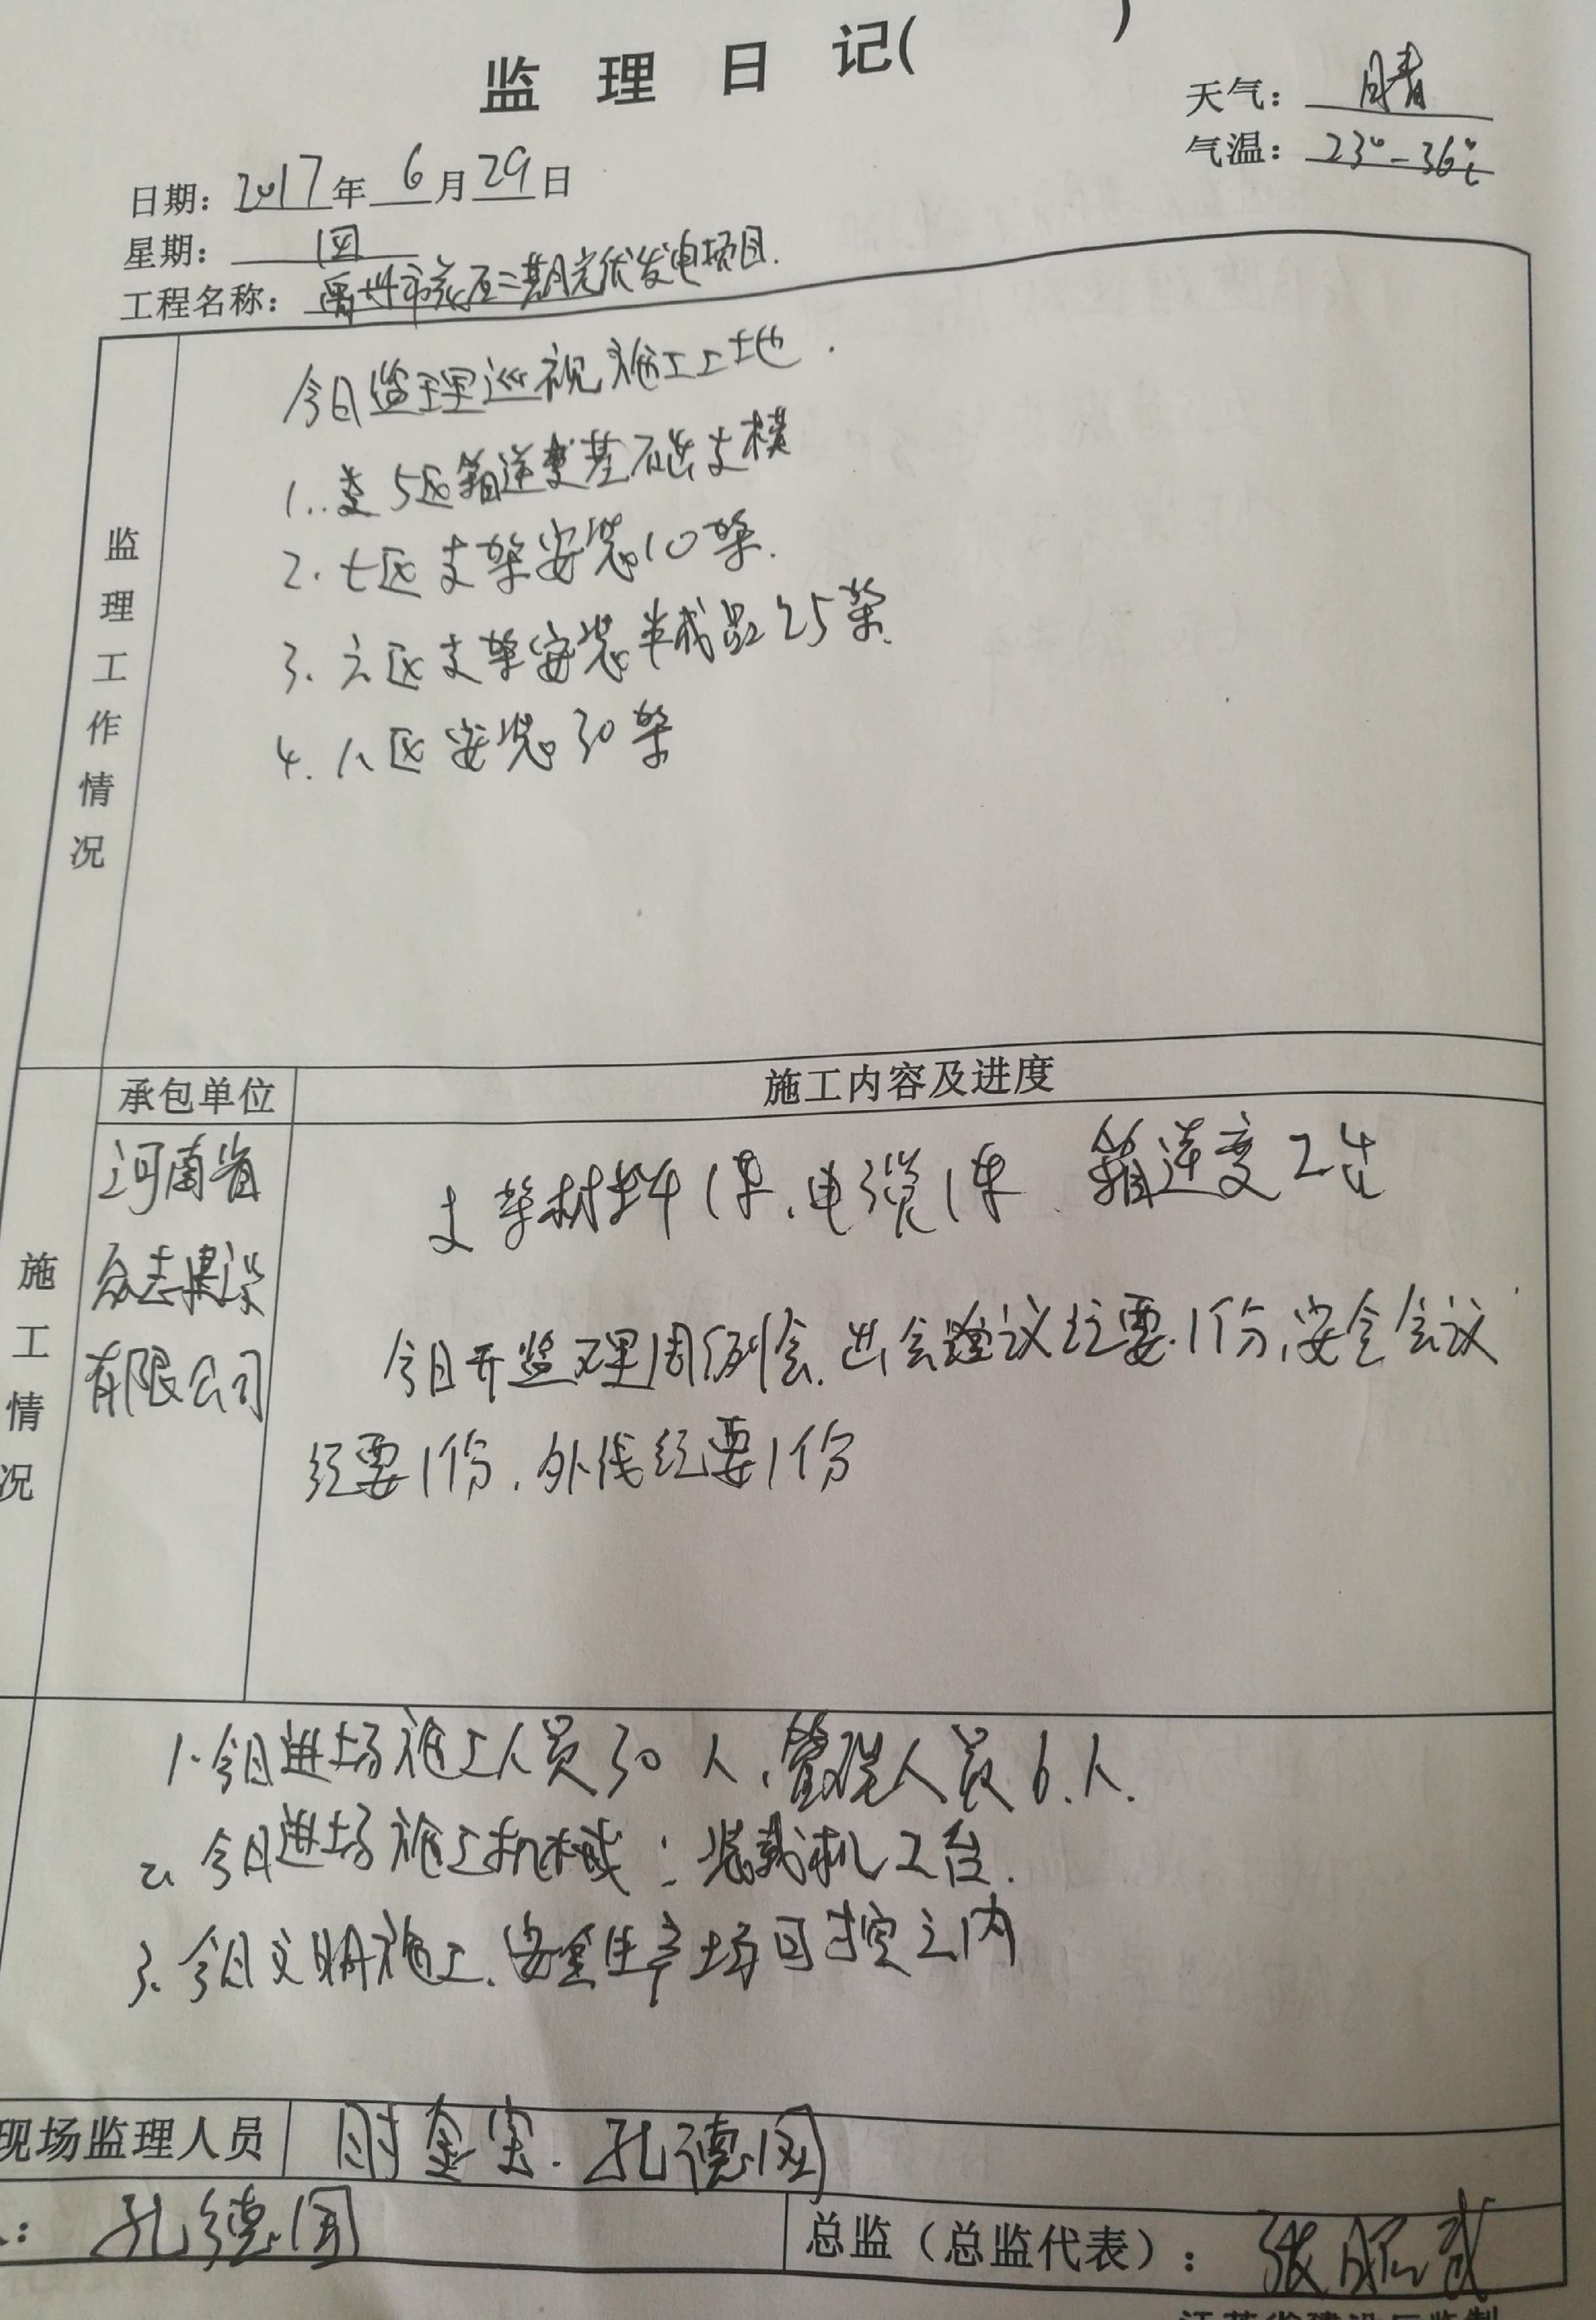 监理日记( )
天气：晴
气温：23°-36℃
日期：2017年6月29日
星期：四
工程名称：禹州市苌庄二期光伏发电项目.
监理工作情况
今日监理巡视施工工地.
1. 5区箱逆变基础支模
2. 七区支架安装10架.
3. 六区支架安装半成品25架.
4. 八区安装30架
承包单位
施工内容及进度
施工情况
河南省
建设
有限公司
支架材料1车、电缆1车、箱逆变2台
今日开监理周例会.出会议纪要.1份,安全会议
纪要1份.外线纪要1份
1.今日进场施工人员30人,管理人员6人.
2.今日进场施工机械:装载机2台.
3.今日文明施工.安全生产均可控之内
现场监理人员
时金宝.孔德国
：孔德国
总监（总监代表）：张